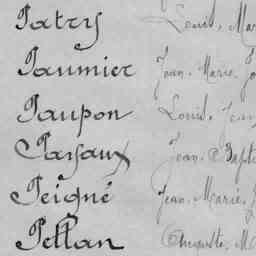 Patry Louis, Mar
Paumier Jean, Marie, Jo
Paupon Louis, Jean
Paysaux Jean, Bapti
Peigné Jean, Marie, J
Pellan Auguste, M